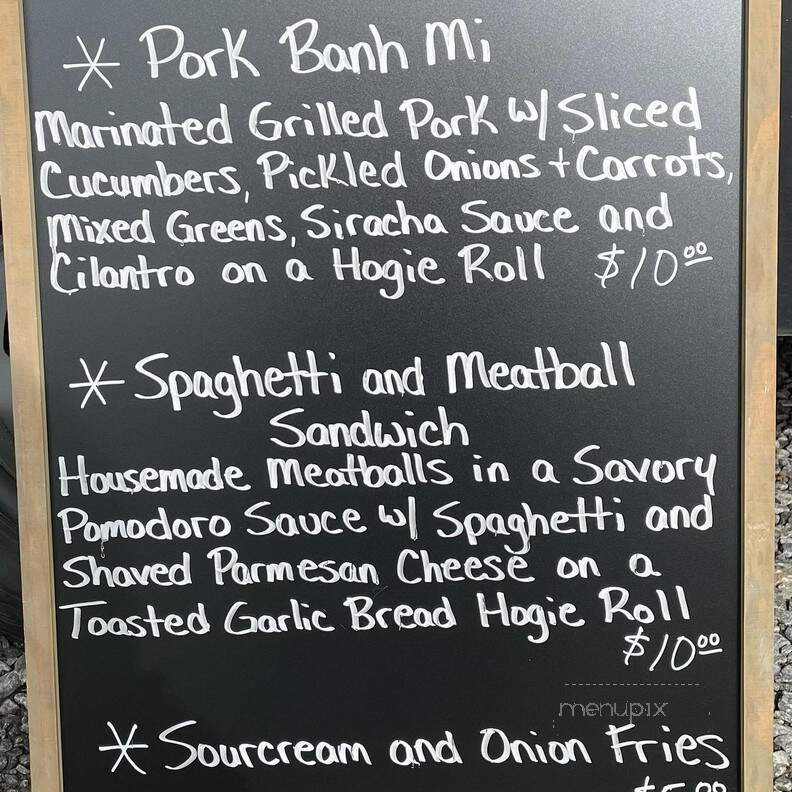 * Pork Banh Mi
Marinated Grilled Pork w/ Sliced
Cucumbers, Pickled Onions + Carrots,
Mixed Greens, Siracha Sauce and
Cilantro on a Hogie Roll $10.00
* Spaghetti and Meatball
Sandwich
Housemade Meatballs in a Savory
Pomodoro Sauce w/ Spaghetti and
Shaved Parmesan Cheese on a
Toasted Garlic Bread Hogie Roll
$10.00
menupix
* Sourcream and Onion Fries
$5.00